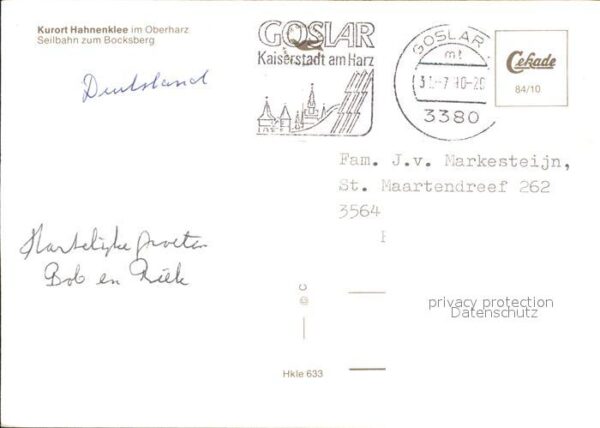 Kurort Hahnenklee im Oberharz
Seilbahn zum Bocksberg
Deutsland
GOSLAR
Kaiserstadt am Harz
GOSLAR
mt
3380
Cekade
84/10
Fam. J.v. Markesteijn,
St. Maartendreef 262
3564
Hartelijke groeten
Bob en Riek
© C
privacy protection
Datenschutz
Hkle 633